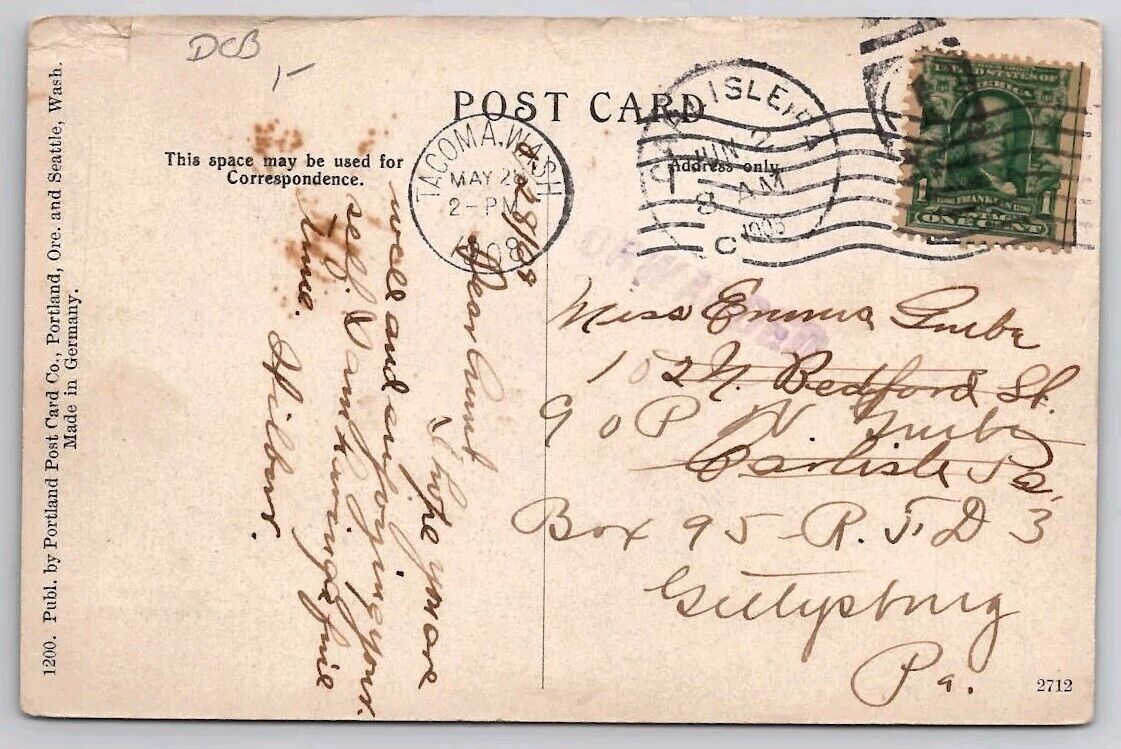 DCB
1-
POST CARD
This space may be used for
Correspondence.
Address only.
TACOMA, WASH
MAY 28
2-PM
1908
CARLISLE, PA
JUN 2
8 AM
1908
C
UNITED STATES OF
AMERICA
1 FRANKLIN 1
ONE CENT
FORWARDED
5/28/08
Dear Aunt
I hope you are
well and enjoying your
self. I am having a fine
time.
Wilbur.
Miss Emma
102 N. Bedford St.
℅ P N
Carlisle Pa.
Box 95 - R. F D 3
Gettysburg
Pa.
1200. Publ. by Portland Post Card Co., Portland, Ore. and Seattle, Wash.
Made in Germany.
2712